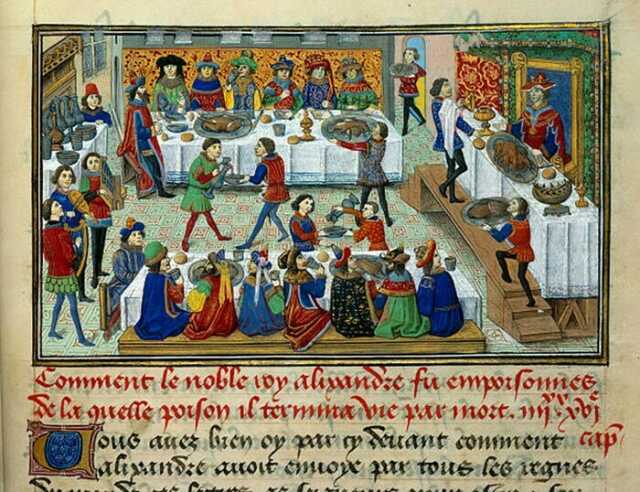 Comment le noble roy alixandre fu empoisonnes
de la quelle poison il termina vie par mort. iiijxx xvje
cape
Vous avez bien oy par cy devant comment
alixandre avoit envoye par tous les regnes